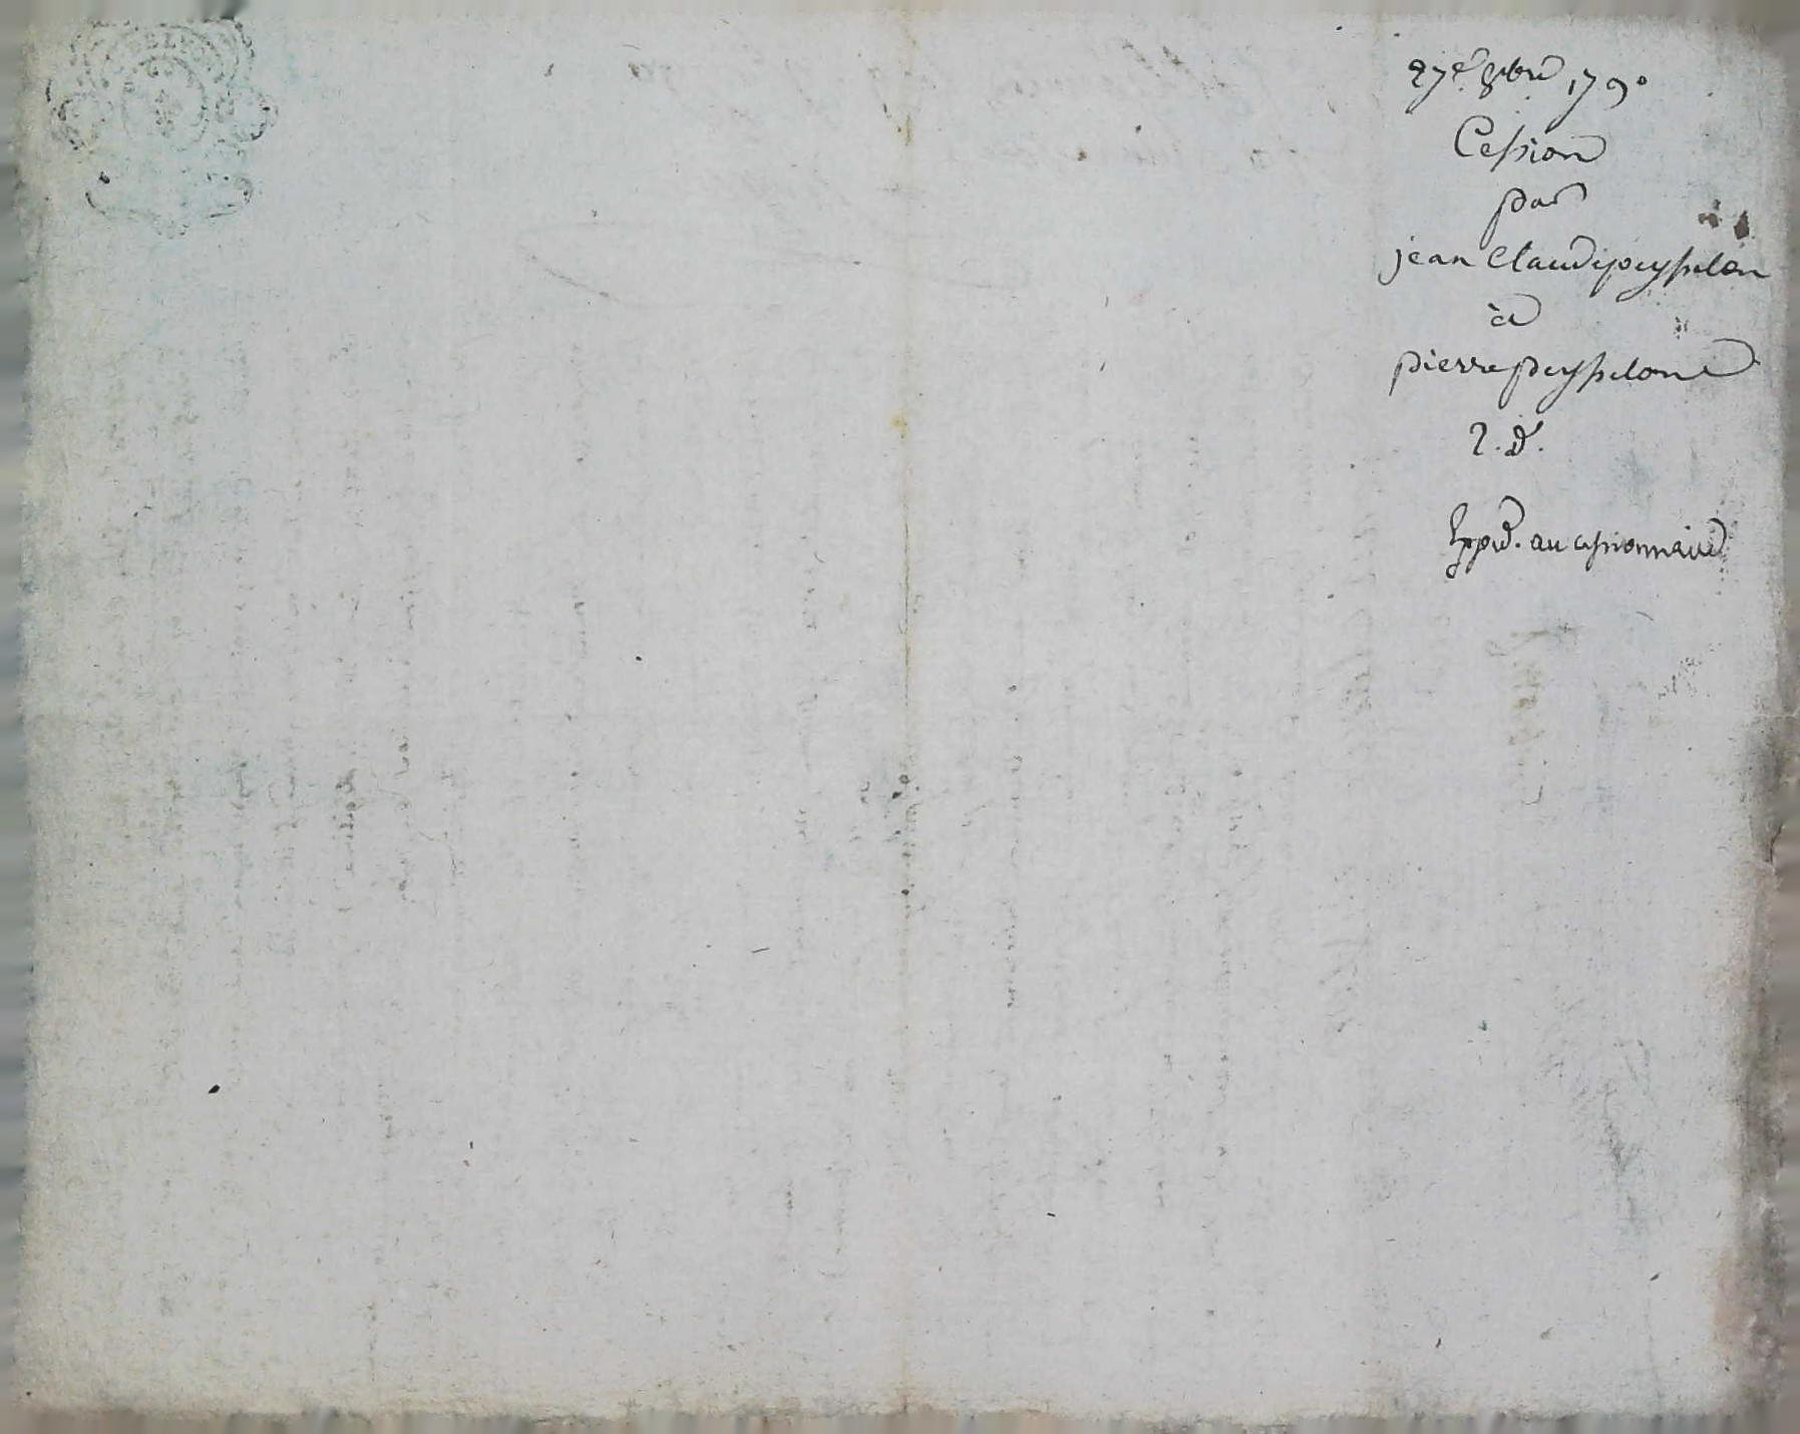 27e. 8bre 1790
Cession
par
jean Claude peysselon
à
pierre peysselon
2. d.
Exped. au cessionnaire